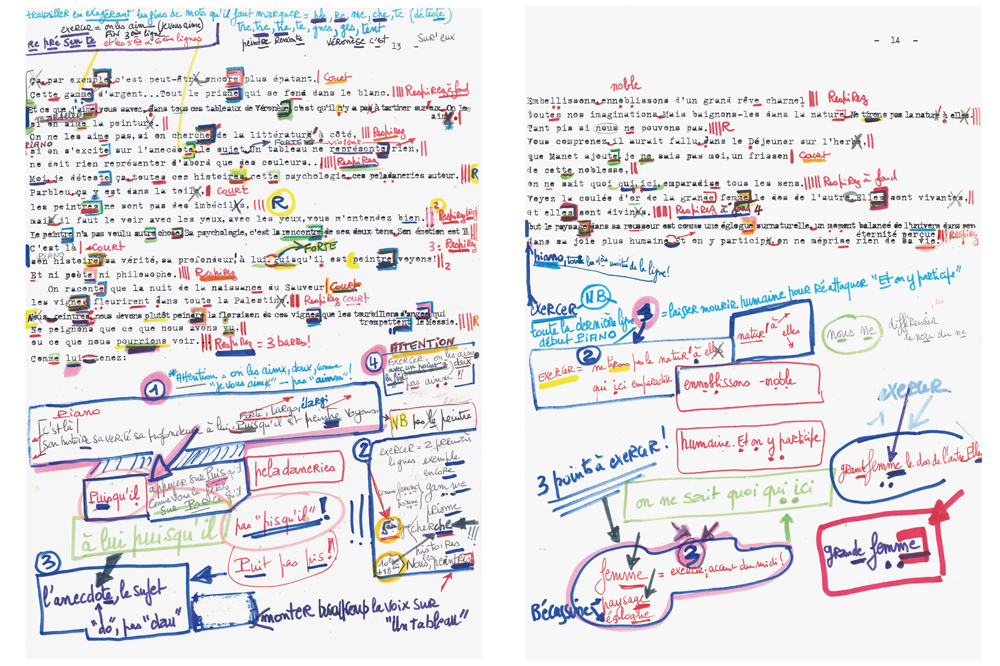 travailler en exagérant les fins de mots qu'il faut marquer = ple, re, me, che, te (déteste)
exercer = on les aim (je vous aime)
FIN 3e ligne
et les 5e à 6e lignes
tre, tre, tre, te, gnes, ges, tent
RE PRÉ SEN TE
peintre Rencontre
VÉRONÈSE C'EST
13
Sur'eux
Ça par exemple c'est peut-être encore plus épatant. Court
Cette gamme d'argent...Tout le prisme qui se fond dans le blanc. Respirez à fond
Et ce que j'aime vous savez dans tous ces tableaux de Véronèse c'est qu'il n'y a pas à tartiner sur eux. On les
aime
si on aime la peinture.
On ne les aime pas, si on cherche de la littérature à côté, Respirez
PIANO
FORTE violent
si on s'excite sur l'anecdote le sujet Un tableau ne représente rien,
ne doit rien représenter d'abord que des couleurs. Respirez
Moi je déteste ça toutes ces histoires cette psychologie ces péladaneries autour. R
Parbleu ça y est dans la toile. COURT
les peintres ne sont pas des imbéciles, R
mais il faut le voir avec les yeux, avec les yeux, vous m'entendez bien. Respirez
Le peintre n'a pas voulu autre chose. Sa psychologie, c'est la rencontre de ses deux tons. Son émotion est là
C'est là Court
FORTE
PIANO
son histoire sa vérité, sa profondeur à lui puisqu'il est peintre voyons!
Et ni poète ni philosophe. Respirez
On raconte que la nuit de la naissance du Sauveur Court
les vignes fleurirent dans toute la Palestine. Respirez court
Nous peintres, nous devons plutôt peindre la floraison de ces vignes que les tourbillons d'anges qui
trompettent le Messie. R
Ne peignons que ce que nous avons vu.
ou ce que nous pourrions voir. Respirez = 3 barres!
Comme lui tenez:
ATTENTION
*Attention = on les aimx, doux, comme
"je vous aime" - pas "aimm"!
4
EXERCER = on les aime
doux
pas aimm!!
1
Piano
Forte, largo, élargi
c'est là
son histoire sa vérité sa profondeur à lui. Puisqu'il est peintre voyons
NB pas le peintre
Puisqu'il
appuyer sur Puisqu'il
péladaneries
à lui puisqu'il
pas "pisqu'il"!
Puit pas pis!
2
exercer = 2 premières
lignes exemple
encore
gamme
prisme
cherche
histoires
les
Nous, peintres
3
l'anecdote, le sujet
"dô", pas "dau"
monter beaucoup la voix sur
"Un tableau"
- 14 -
noble
Embellissons, ennoblissons d'un grand rêve charnel Respirez
toutes nos imaginations. Mais baignons-les dans la nature. Ne tirons pas la nature à elles
Tant pis si nous ne pouvons pas. R
Vous comprenez il aurait fallu dans le Déjeuner sur l'herbe,
que Manet ajoute, je ne sais pas moi, un frisson Court
de cette noblesse,
on ne sait quoi qui, ici emparadise tous les sens. Respirez à fond
Voyez la coulée d'or de la grande femme le dos de l'autre. Elles sont vivantes.
et elles sont divines. Respirez à fond 4
Tout le paysage dans sa rousseur est comme une églogue surnaturelle, un moment balancé de l'univers dans son
éternité perçue
dans sa joie plus humaine. Et on y participe, on ne méprise rien de sa vie. Respirez
piano, toute la 1ère moitié de la ligne!
EXERCER
NB
toute la dernière ligne
début PIANO
3
= laisser mourir humaine pour Réattaquer "Et on y participe"
2
EXERCER = ne tirons pas la natur' à elles
qui ici emparadise
natur' à
elles
nous ne
différencier
le nou du ne
ennoblissons - noble
exercer
1
humaine. Et on y participe
3 points à exercer!
grand femme le dos de l'autre. Elles
on ne sait quoi qui ici
3
femme = exercer, accent du midi!
paysage
églogue
Bécassine
grande femme